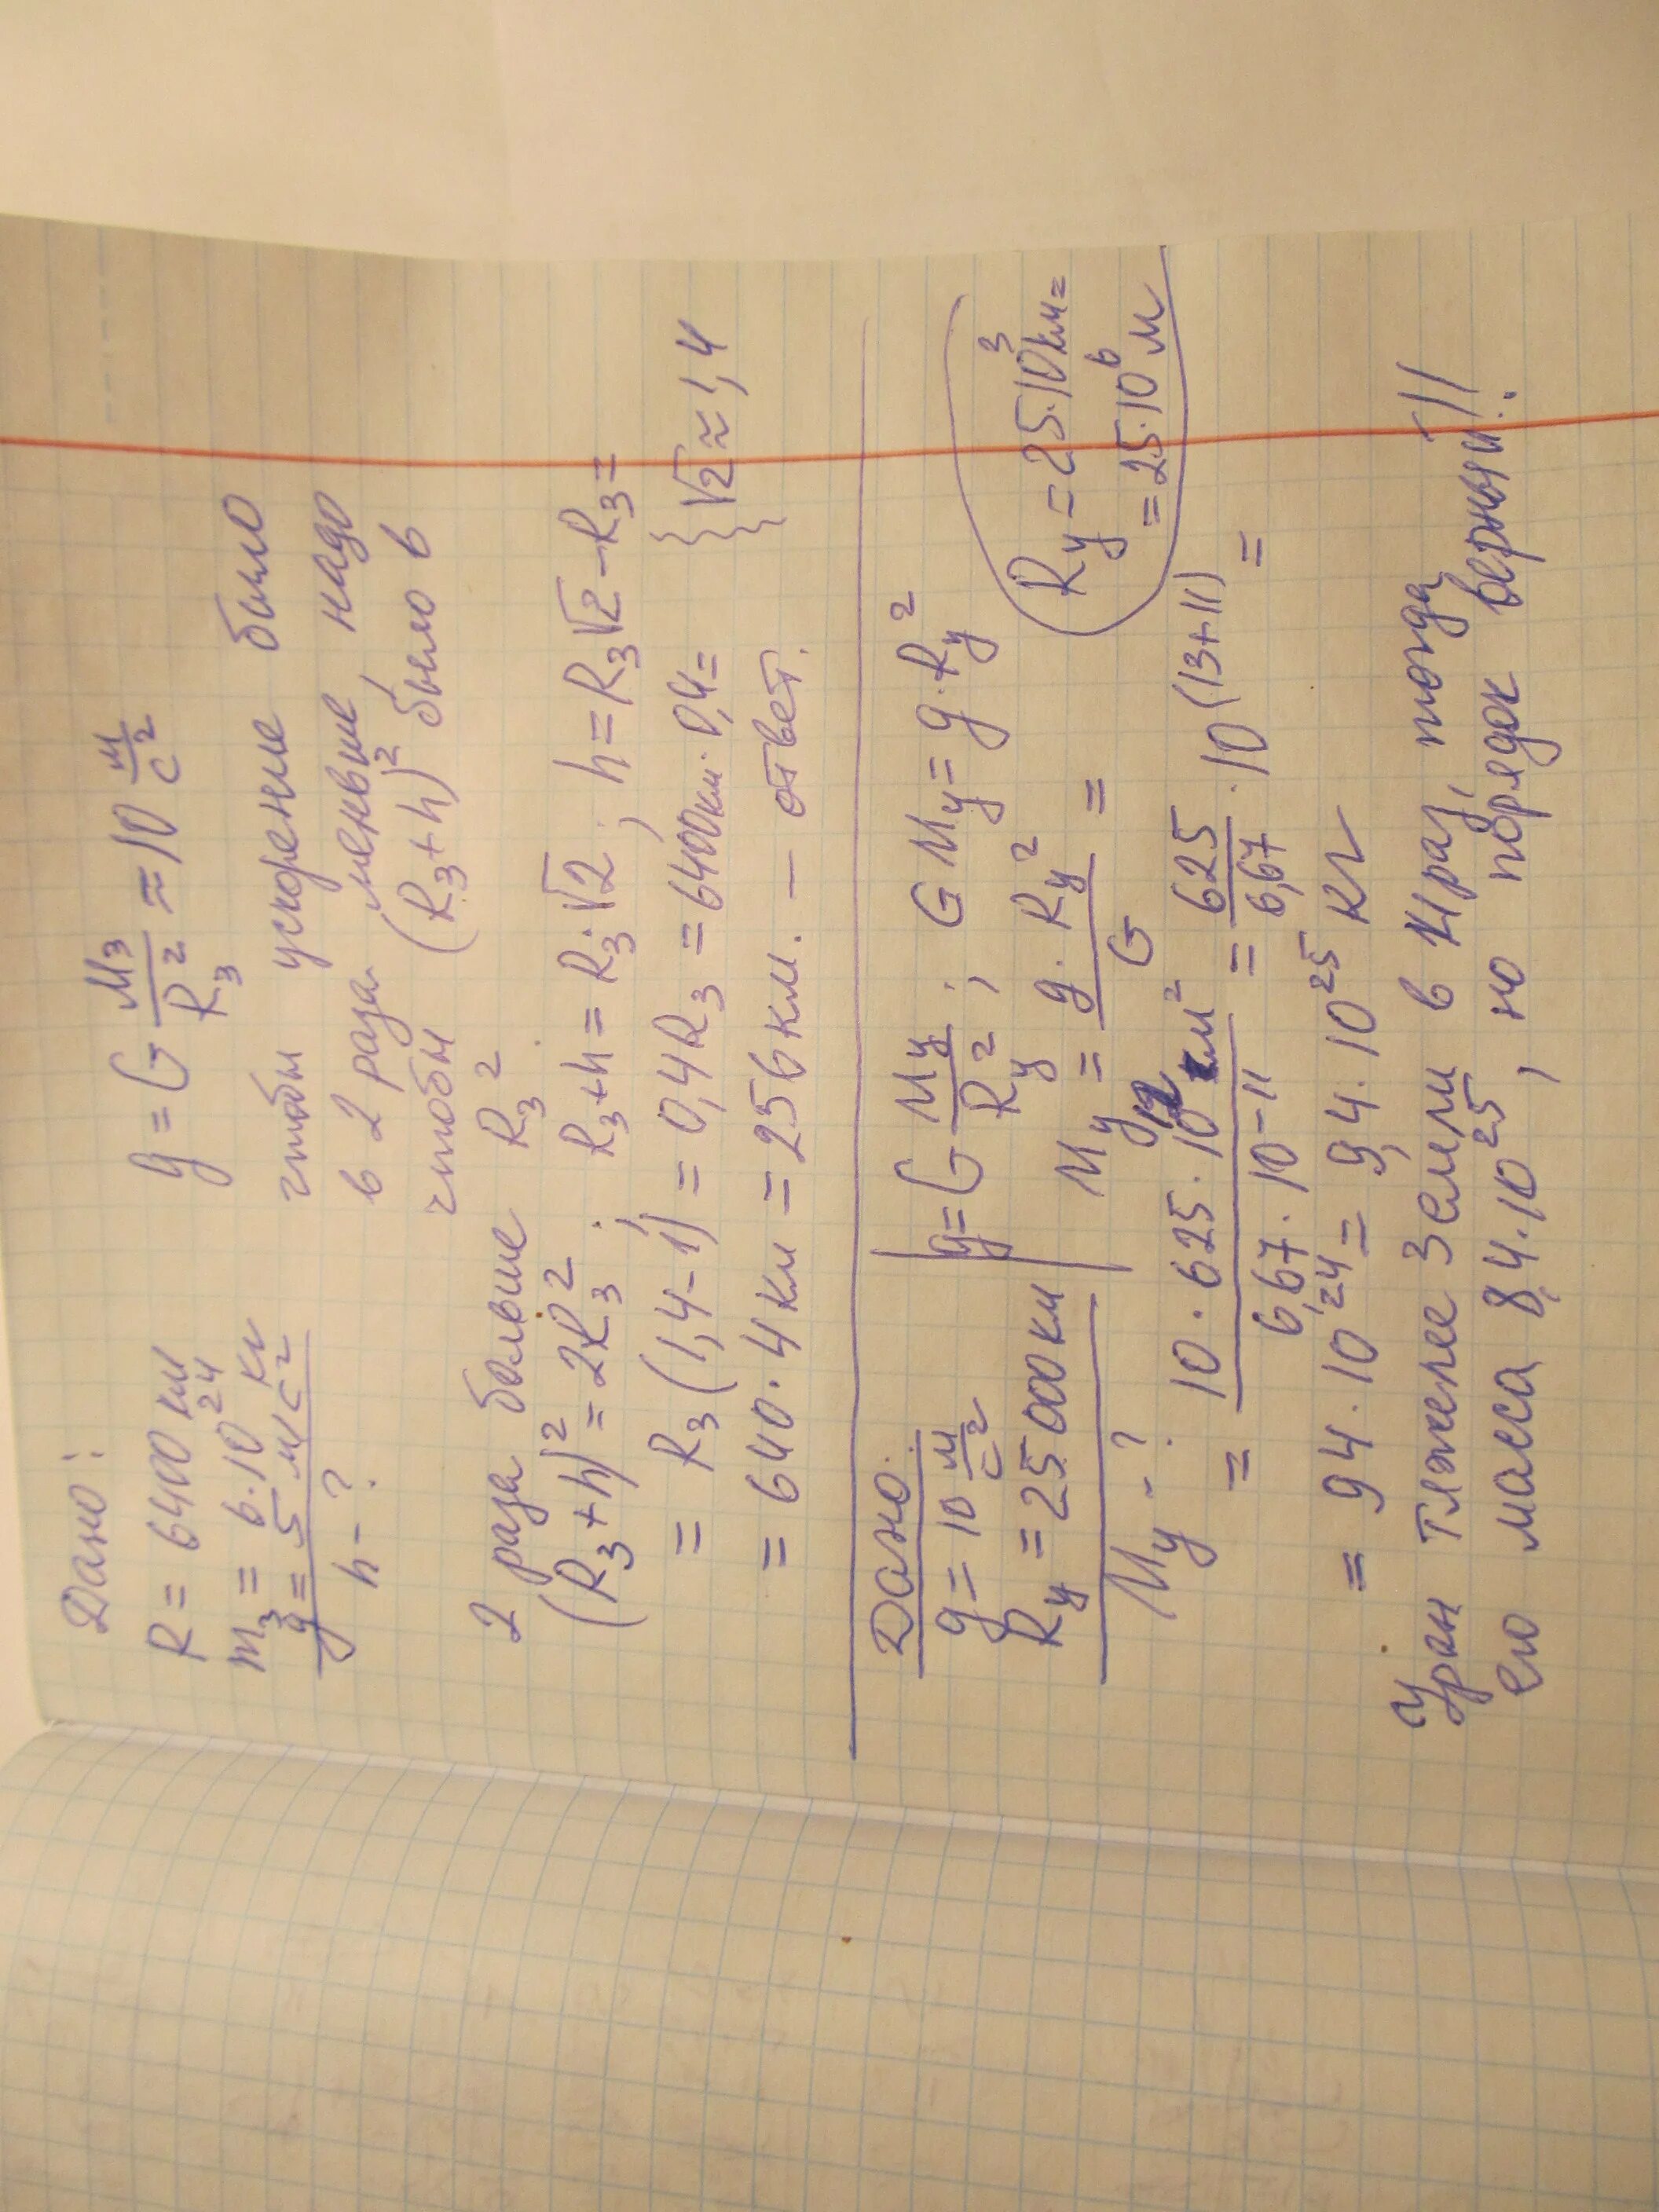 Дано:
R = 6400 км
m₃ = 6·10²⁴ кг
g = 5 м/с²
h - ?
g = G M₃/R₃² ≈ 10 м/с²
чтобы ускорение было
в 2 раза меньше, надо
чтобы (R₃+h)² было в
2 раза больше R₃²
(R₃+h)² = 2R₃²; R₃+h = R₃·√2; h = R₃√2 - R₃ =
= R₃(1,4-1) = 0,4R₃ = 6400км·0,4= } √2 ≈ 1,4
= 640·4км = 256км. — ответ.
Дано:
g = 10 м/с²
Rу = 25 000 км
Mу - ?
g = G Mу/Rу²; G Mу = g·Rу²
Mу = g·Rу²/G =
Rу = 25·10³км =
= 25·10⁶ м
= 10·625·10¹²м²/6,67·10⁻¹¹ = 625/6,67·10⁽¹³⁺¹¹⁾ =
= 94·10²⁴ = 9,4·10²⁵ кг
Уран тяжелее Земли в 14раз, тогда
его масса 8,4·10²⁵, но порядок верный!!